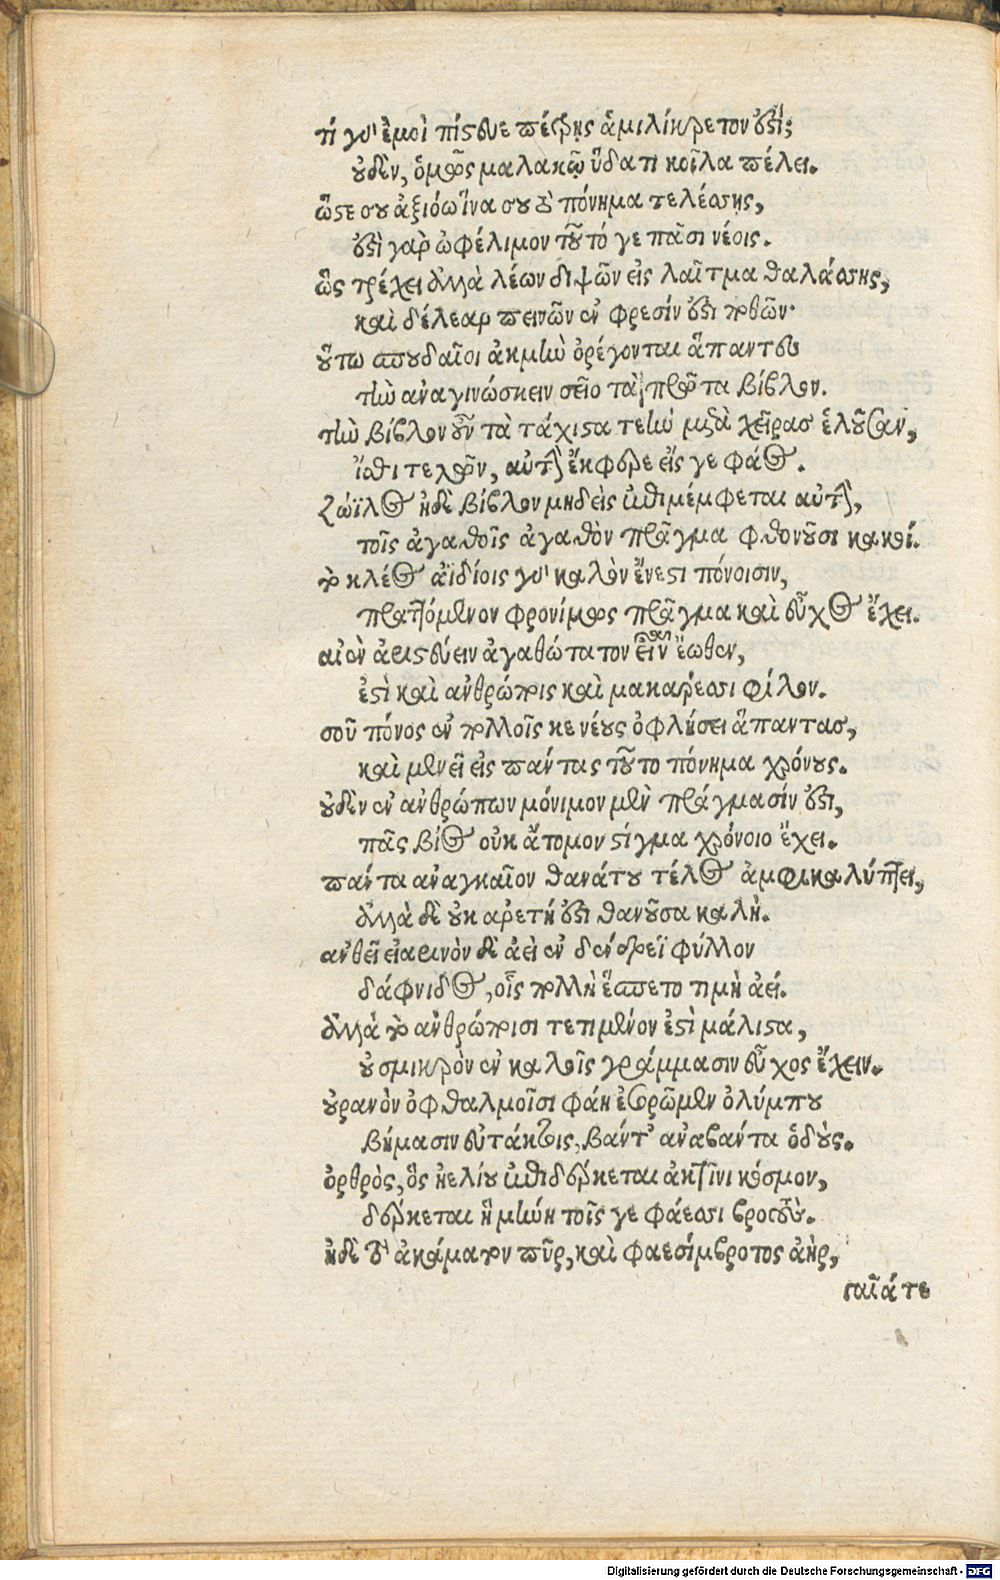 τί γ' ἐμοὶ πίςευε πέτρης ἀμιλίκρετον ἐςί;
οὐδὲν, ὅμως μαλακῷ ὕδατι κοῖλα πέλει.
ὥςε σου ἀξιόω ἵνα σου τὸ πόνημα τελέσης,
ἐςὶ γαρ ὠφέλιμον τοῦτό γε πᾶσι νέοις.
ὣς τρέχει ἀλλὰ λέων διψῶν εἰς λαῖτμα θαλάσσης,
καὶ δέλεαρ πεινῶν ἐν φρεσίν ἐςι ποθῶν·
οὕτω σπουδαῖοι ἀκμὴν ὀρέγονται ἅπαντες
τὴν αναγινώσκειν σεῖο τὰ πρῶτα βίβλον.
τὴν βίβλον οὖν τὰ τάχιςα τεὴν μετὰ χεῖρας ἑλοῦσαν,
ἴσθι τελῶν, αὐτὴν ἔκφερε εἴς γε φάος.
Ζώϊλος ἠδὲ βίβλον μηδεὶς ἐπιμέμφεται αὐτὴν,
τοῖς ἀγαθοῖς ἀγαθὸν πρᾶγμα φθονοῦσι κακοί.
τὸ κλέος ἀϊδίοις γ' καλὸν ἔνεςι πόνοισιν,
πραττόμενον φρονίμως πρᾶγμα καὶ εὖχος ἔχει.
αἰὲν ἀριςεύειν ἀγαθώτατον εἶναι ἔωθεν,
ἐςὶ καὶ ανθρώποις καὶ μακαρέσσι φίλον.
σοῦ πόνος ἐν πολλοῖς κε νέους ὀφλήσει ἅπαντας,
καὶ μενεῖ εἰς πάντας τοῦτο πόνημα χρόνους.
οὐδὲν ἐν ανθρώπων μόνιμον μὲν πράγμασίν ἐςι,
πᾶς βίος οὐκ ἄτομον ςίγμα χρόνοιο ἔχει.
πάντα αναγκαῖον θανάτου τέλος ἀμφικαλύπτει,
ἀλλὰ δὲ οὐκ αρετή ἐςι θανοῦσα καλή.
ανθεῖ εἰαρινὸν δὲ ἀεὶ ἐν δένδρεϊ φύλλον
δάφνιδος, οἷς πολλὴ ἕσπετο τιμὴ ἀεί.
ἀλλὰ τὸ ανθρώποισι τετιμένον ἐςὶ μάλιςα,
οὐ σμικρὸν ἐν καλοῖς γράμμασιν εὖχος ἔχειν.
οὐρανὸν ὀφθαλμοῖσι φάη ἐσορῶμεν ὀλύμπου
βήμασιν εὐτάκτοις, βάντ' αναβάντα ὁδούς.
ὀρθρὸς, ὃς ἠελίου ἐπιδέρκεται ἀκτῖνι κόσμον,
δέρκεται ἢ μήνη τοῖς γε φάεσσι βροτούς.
ἠδὲ τ' ἀκάματον πῦρ, καὶ φαεσίμβροτος ἀὴρ,
γαῖά τε
Digitalisierung gefördert durch die Deutsche Forschungsgemeinschaft - DFG